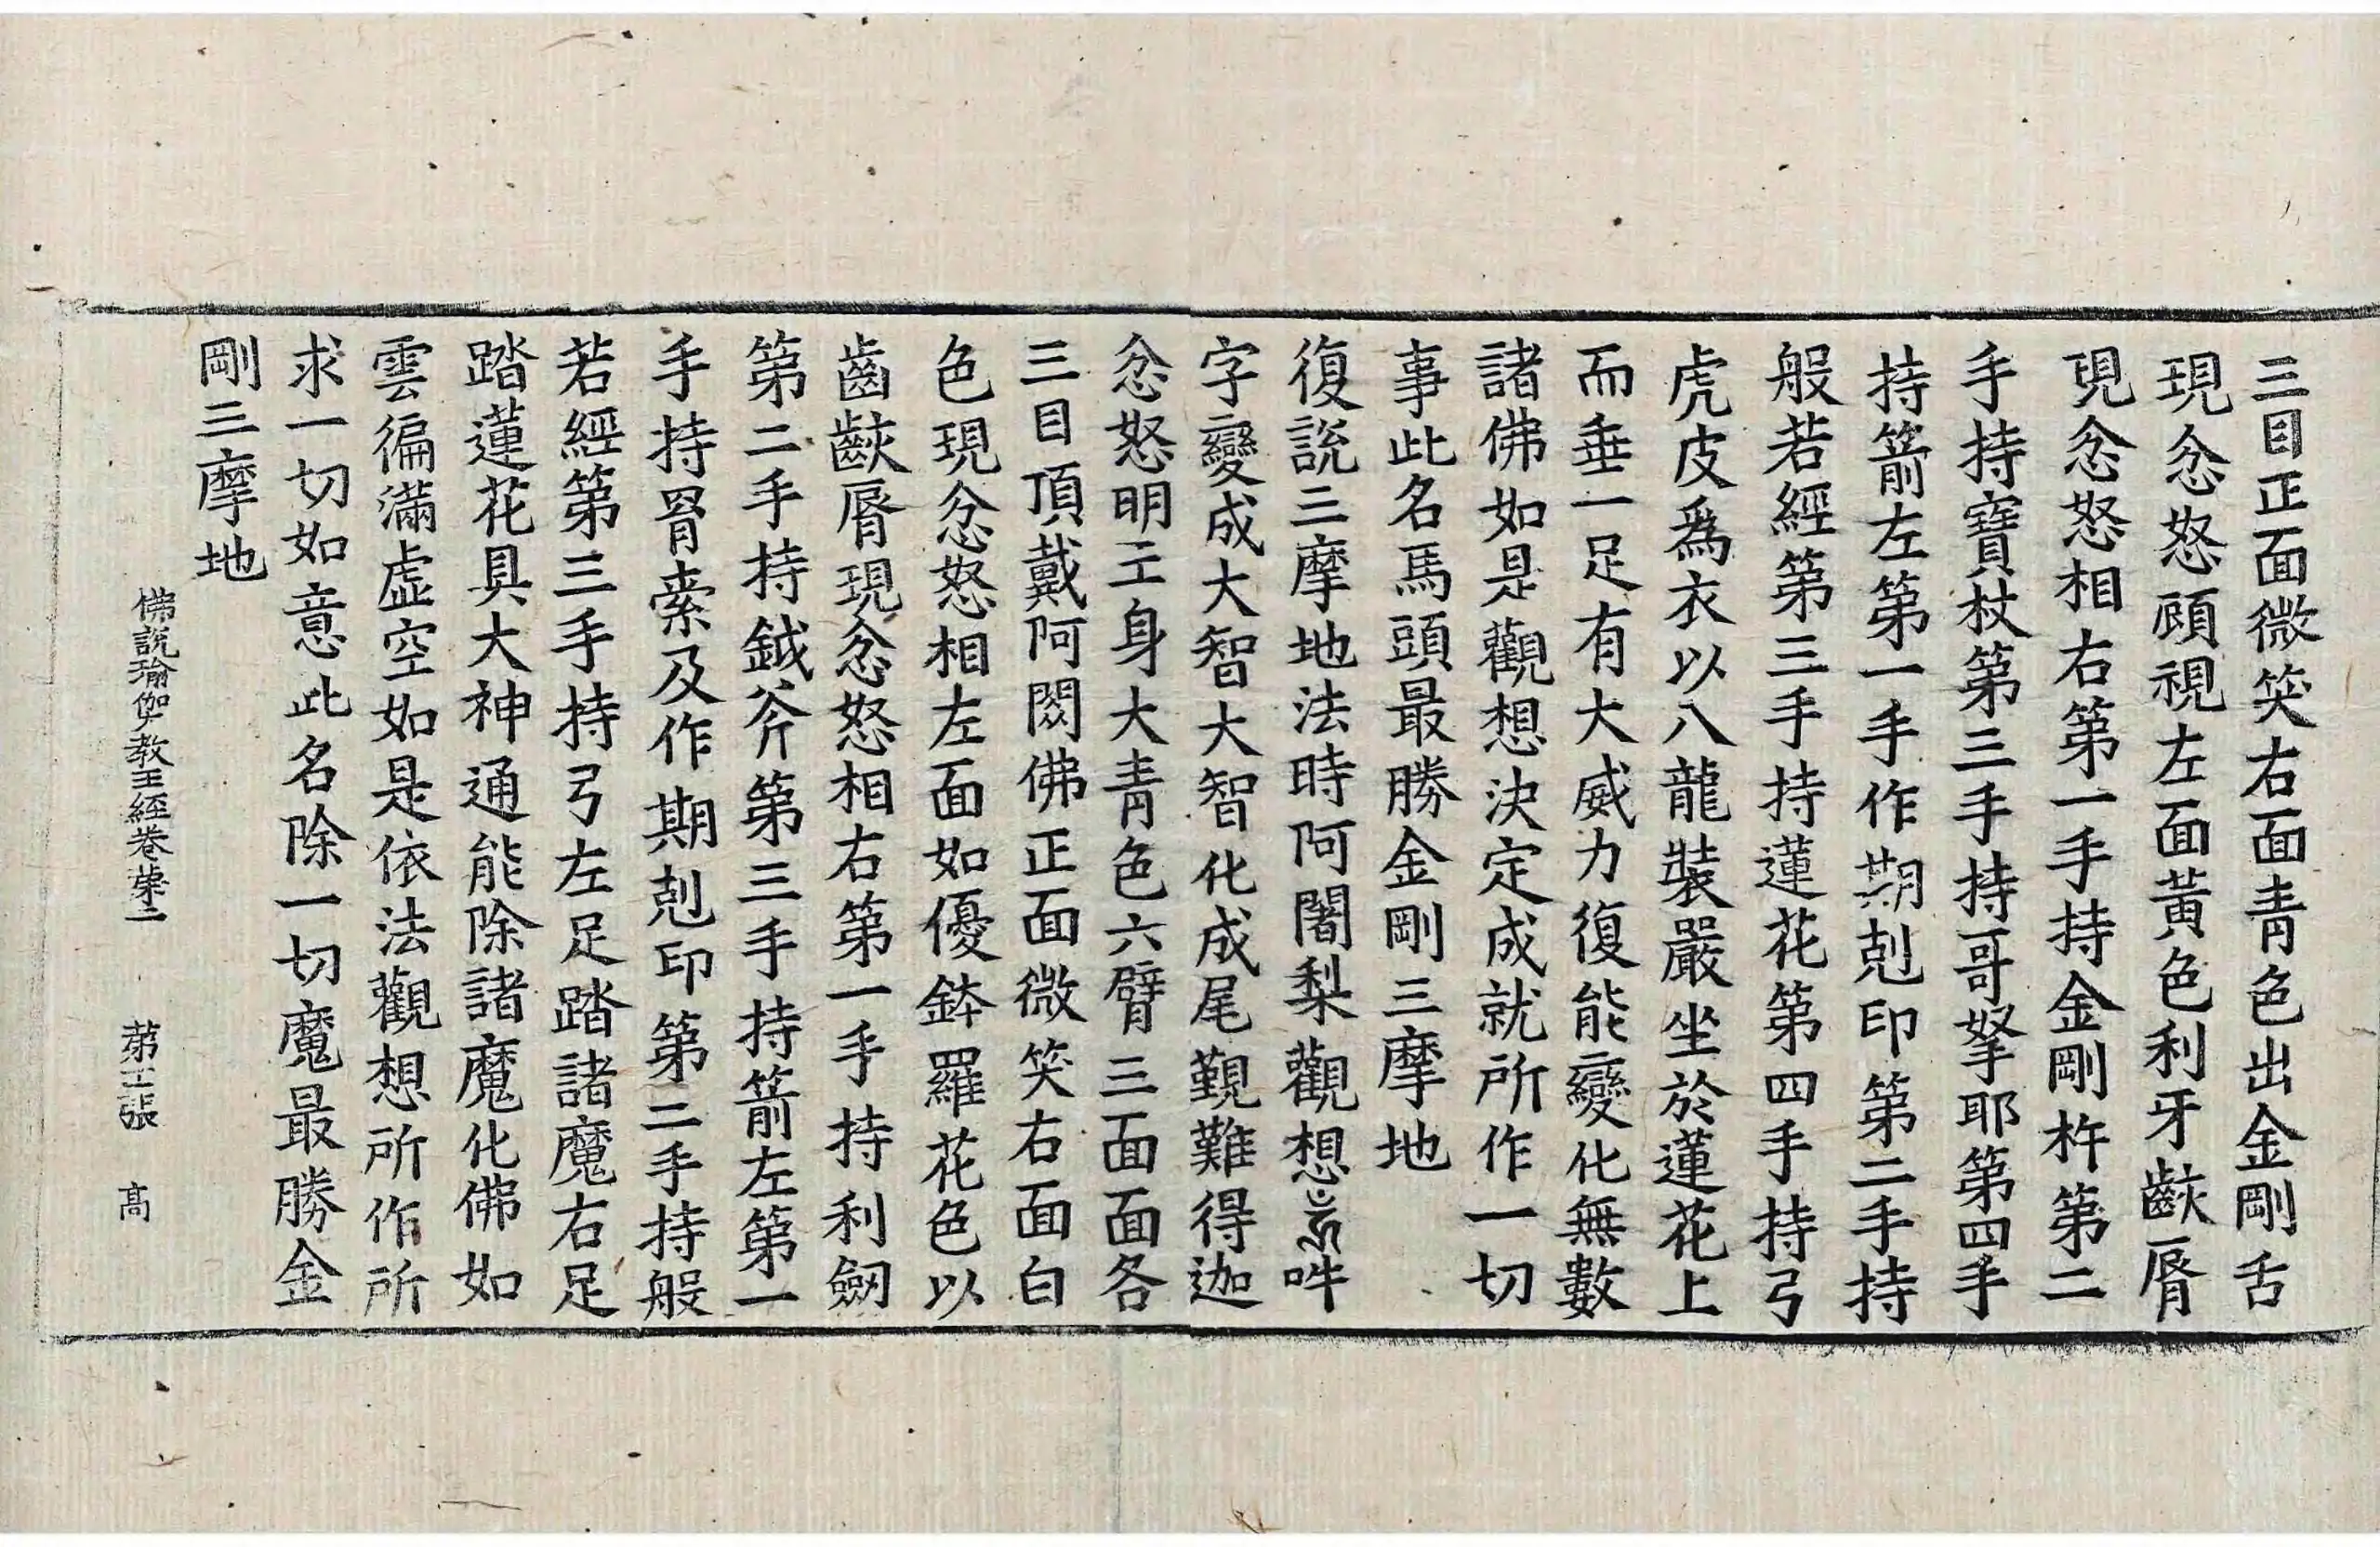 三目正面微笑右面青色出金剛舌
現忿怒顧視左面黃色利牙齩脣
現忿怒相右第一手持金剛杵第二
手持寶杖第三手持哥拏耶第四手
持箭左第一手作期剋印第二手持
般若經第三手持蓮花第四手持弓
虎皮爲衣以八龍裝嚴坐於蓮花上
而垂一足有大威力復能變化無數
諸佛如是觀想決定成就所作一切
事此名馬頭最勝金剛三摩地
復說三摩地法時阿闍梨觀想𤙖吽
字變成大智大智化成尾覲難得迦
忿怒明王身大青色六臂三面面各
三目頂戴阿閦佛正面微笑右面白
色現忿怒相左面如優鉢羅花色以
齒齩脣現忿怒相右第一手持利劒
第二手持鉞斧第三手持箭左第一
手持罥索及作期剋印第二手持般
若經第三手持弓左足踏諸魔右足
踏蓮花具大神通能除諸魔化佛如
雲徧滿虛空如是依法觀想所作所
求一切如意此名除一切魔最勝金
剛三摩地
佛說瑜伽教王經卷第二 第張 高